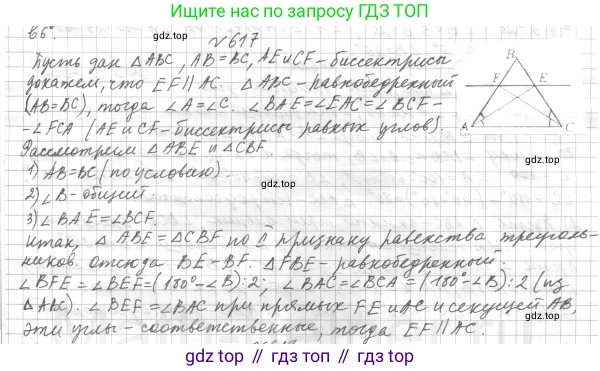 Ищите нас по запросу ГДЗ ТОП
66°.
№617
Пусть дан △ABC, AB=BC, AE и CF-биссектрисы
B
докажем, что EF∥AC. △ABC-равнобедренный
F E
(AB=BC), тогда ∠A=∠C. ∠BAE=∠EAC=∠BCF-
-∠FCA (AE и CF-биссектрисы равных углов).
A C
Рассмотрим △ABE и △CBF.
gdz top
1) AB=BC (по условию).
2) ∠B-общий.
3) ∠BAE=∠BCF.
Итак, △ABE=△CBF по II признаку равенства треуголь-
ников. отсюда BE-BF. △FBE-равнобедренный.
∠BFE=∠BEF=(180°-∠B):2; ∠BAC=∠BCA=(180°-∠B):2 (из
△ABC). ∠BEF=∠BAC при прямых FE и AC и секущей AB,
эти углы-соответственные, тогда EF∥AC.
gdz top // гдз топ // gdz top